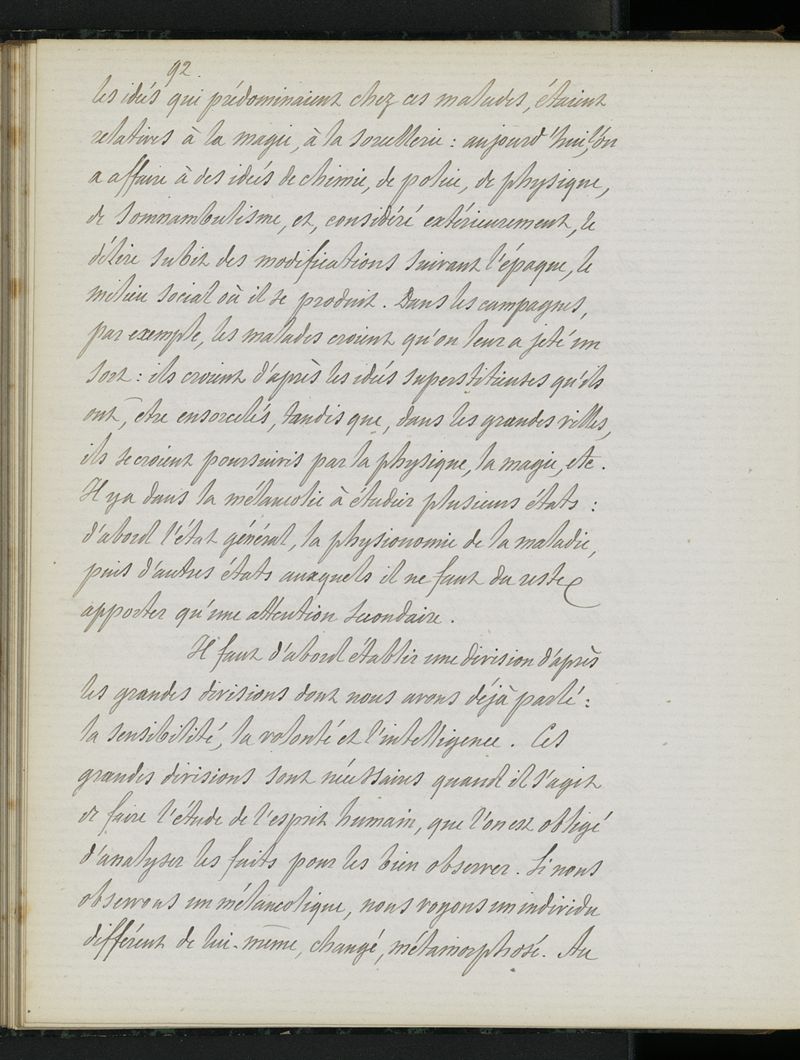 92.
les idées qui prédominaient chez ces malades, étaient
relatives à la magie, à la sorcellerie : aujourd'hui, l'on
a affaire à des idées de chimie, de police, de physique,
de somnambulisme, et, considéré extérieurement, le
délire subit des modifications suivant l'époque, le
milieu social où il se produit. Dans les campagnes,
par exemple, les malades croient qu'on leur a jeté un
sort : ils croient d'après les idées superstitieuses qu'ils
ont, être ensorcelés, tandis que, dans les grandes villes,
ils se croient poursuivis par la physique, la magie, etc.
Il y a dans la mélancolie à étudier plusieurs états :
d'abord l'état général, la physionomie de la maladie,
puis d'autres états auxquels il ne faut du reste
apporter qu'une attention secondaire.
Il faut d'abord établir une division d'après
les grandes divisions dont nous avons déjà parlé :
la sensibilité, la volonté et l'intelligence. Ces
grandes divisions sont nécessaires quand il s'agit
de faire l'étude de l'esprit humain, que l'on est obligé
d'analyser les faits pour les bien observer. Si nous
observons un mélancolique, nous voyons un individu
différent de lui-même, changé, métamorphosé. Au